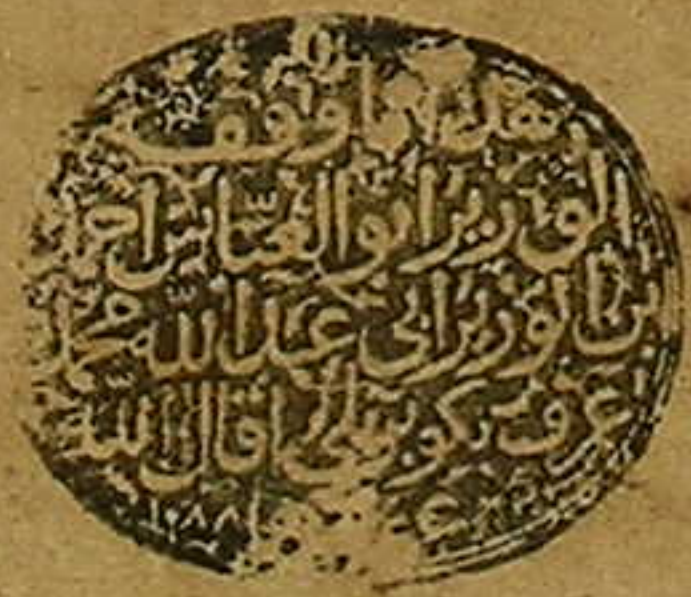 هذا ما وقفه
الوزير ابو العباس احمد
بن الوزير ابي عبد الله محمد
عرف بكوبريلي اقال الله
١٠٨٨